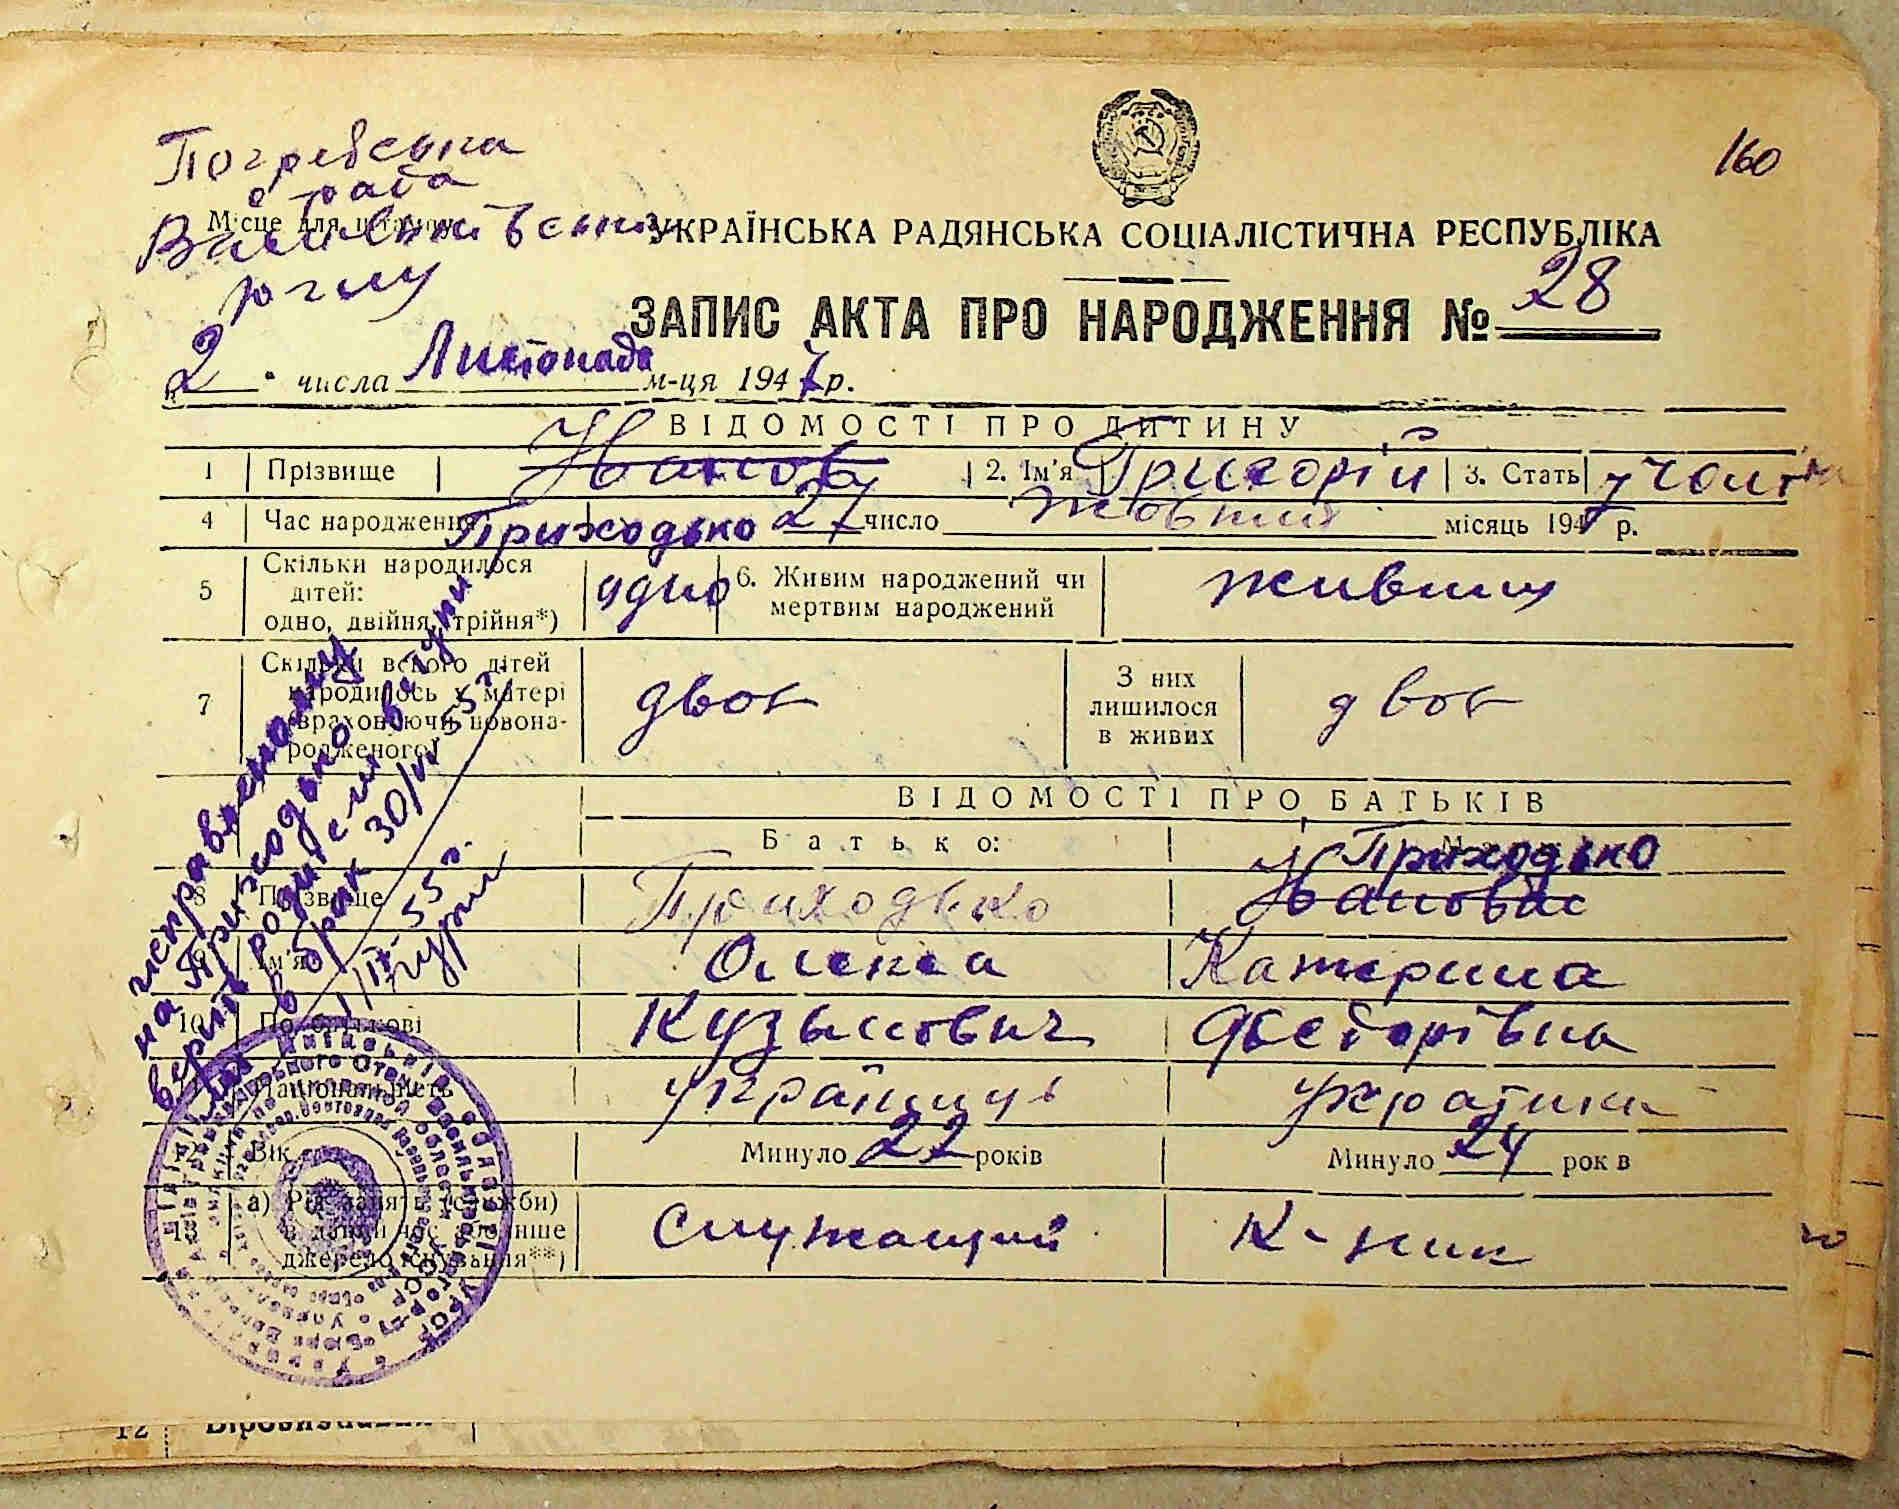 Погребська
с рада
Місце для штампу
Васильківський
р-ну
160
УКРАЇНСЬКА РАДЯНСЬКА СОЦІАЛІСТИЧНА РЕСПУБЛІКА
ЗАПИС АКТА ПРО НАРОДЖЕННЯ № 28
2 " числа Листопада м-ця 1947 р.
ВІДОМОСТІ ПРО ДИТИНУ
1 Прізвище Іванов 2. Ім'я Григорій 3. Стать
Приходько
4 Час народження 27 число жовтня місяць 194 р.
5 Скільки народилося дітей: одно, двійня, трійня*) одно 6. Живим народжений чи мертвим народжений живим
7 Скільки всього дітей народилось у матері (враховуючи новонародженого) двоє З них лишилося в живих двоє
ВІДОМОСТІ ПРО БАТЬКІВ
Батько:
Приходько
8 Прізвище Приходько Іванова
9 Ім'я Олекса Катерина
10 По батькові Кузьмович Федорівна
Національність українець українка
12 Вік Минуло 22 років Минуло 24 рок в
13 а) Рід занять (служби) в даний час або інше джерело існування**) Служащий К-ник
исправленому
на Приходько
верить родители вступили
в брак 30/VI-55 г.
1/IX-55 г.
12